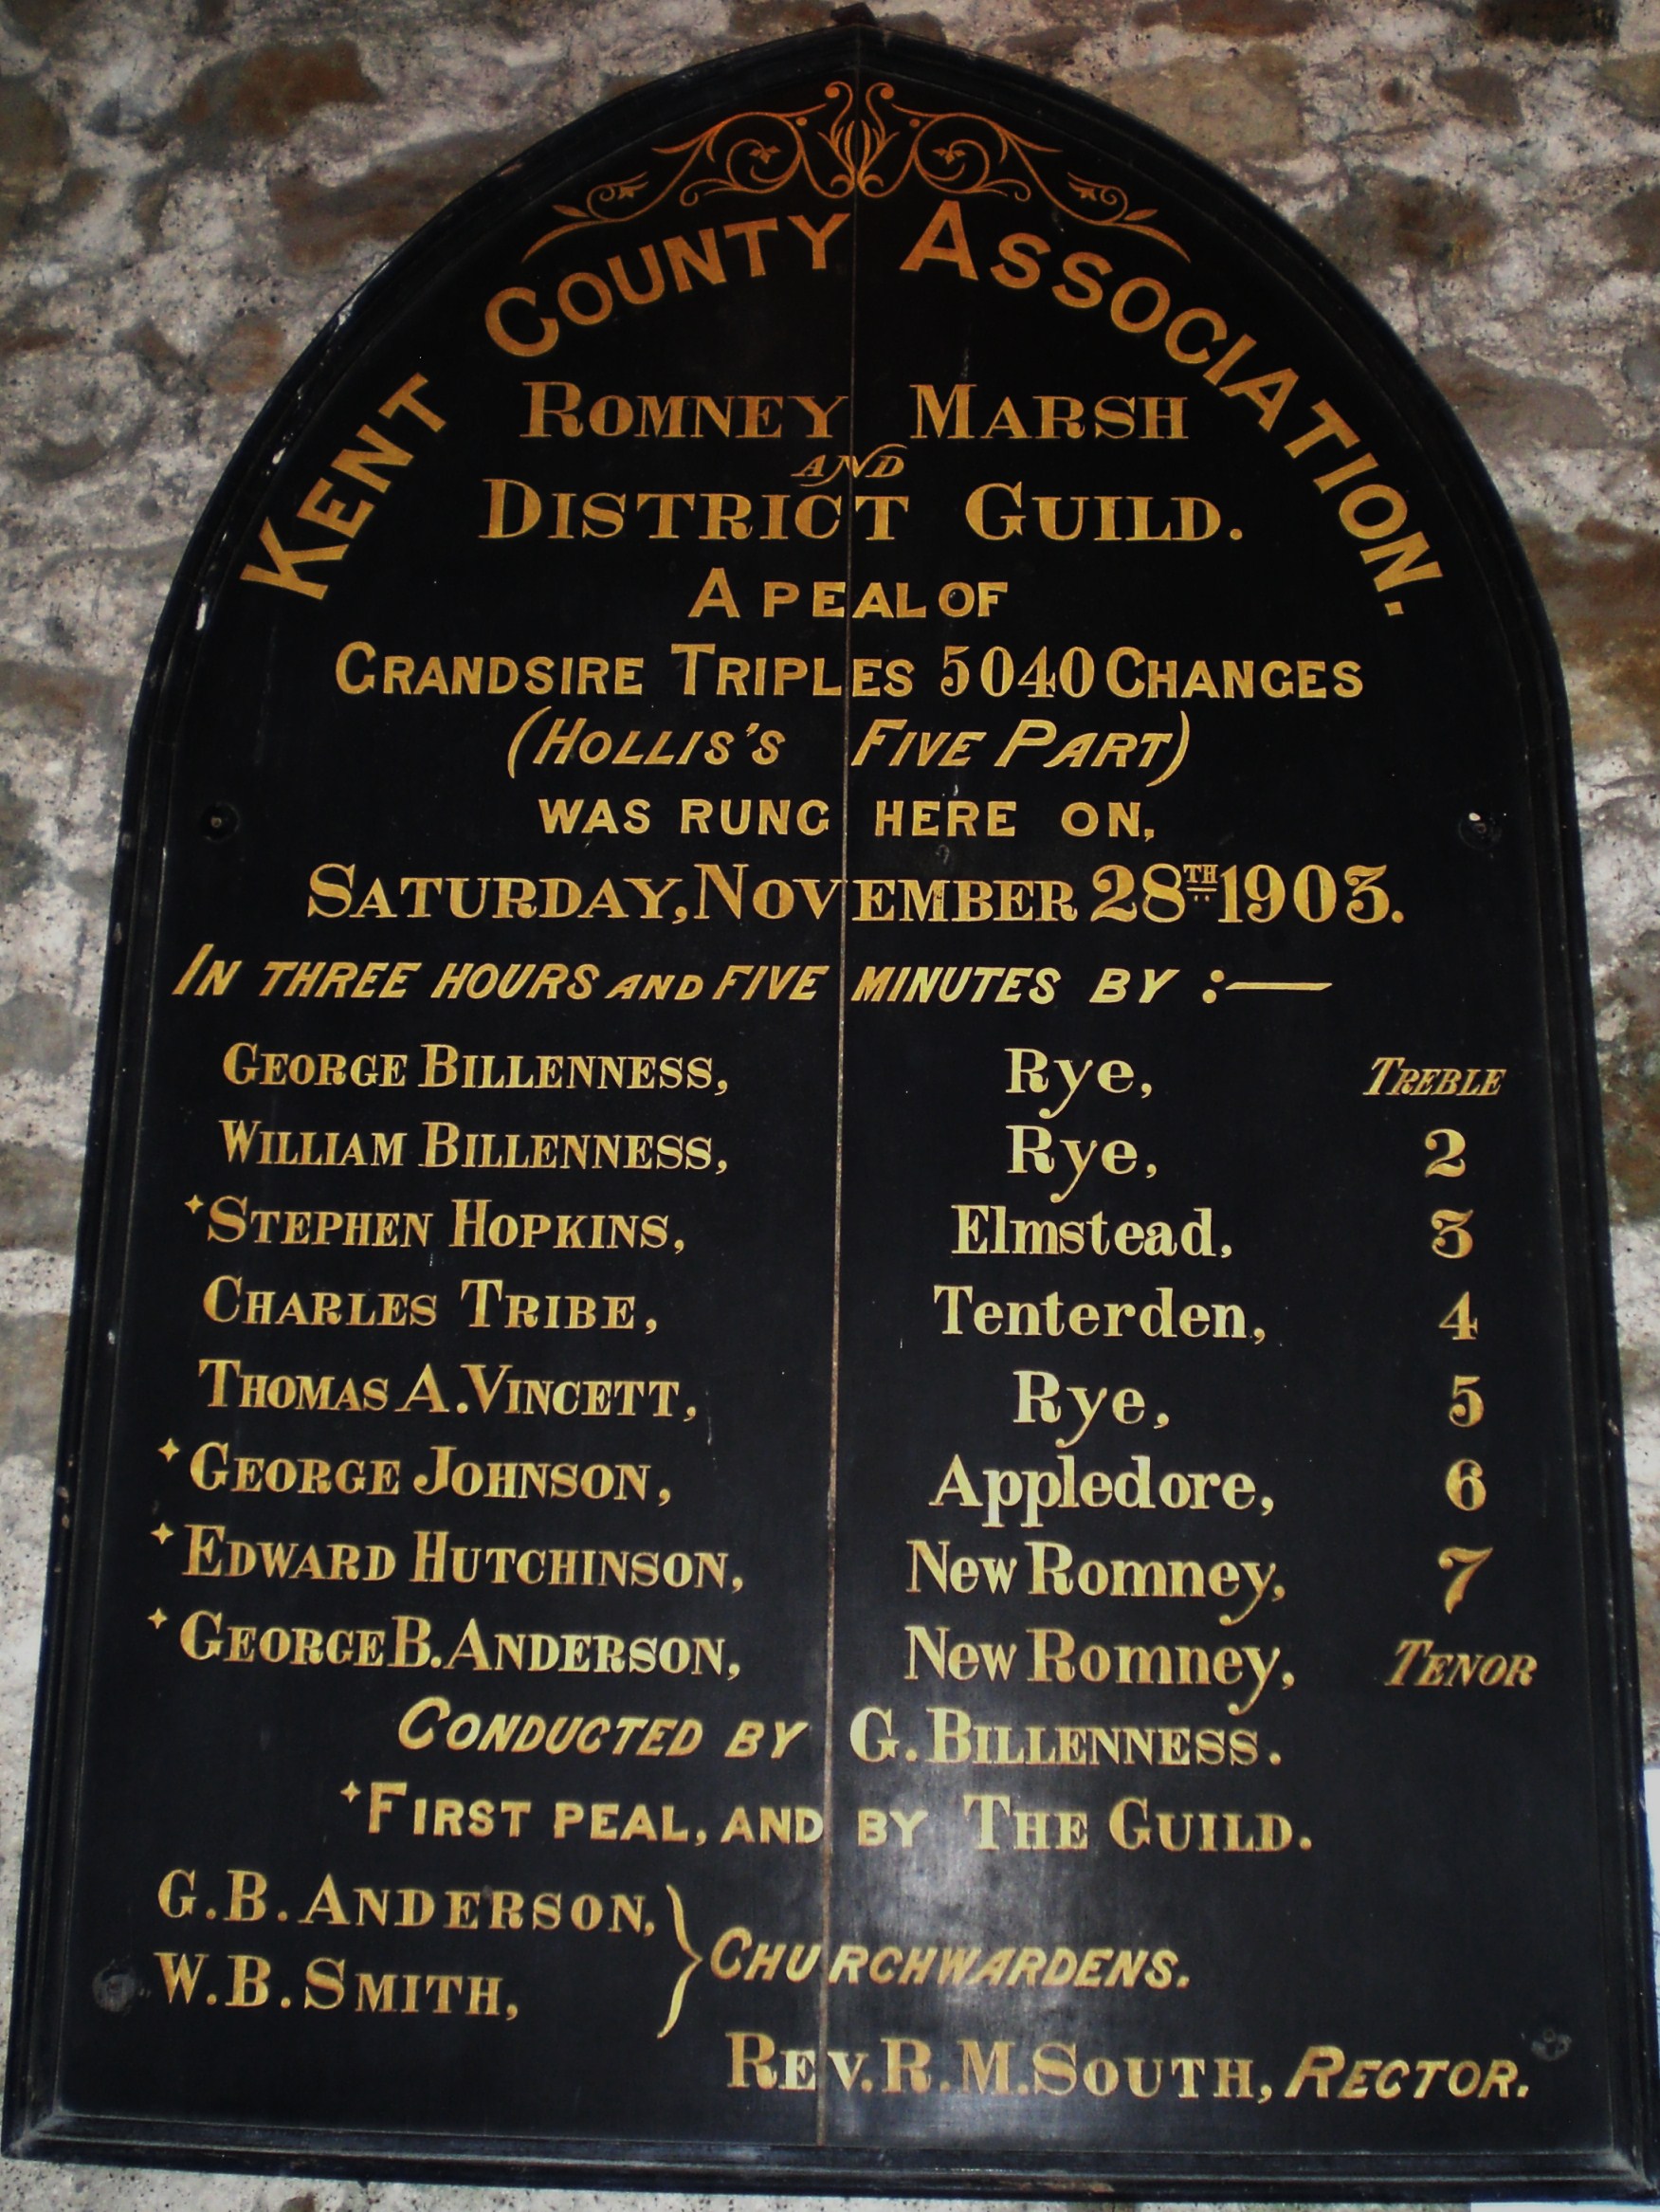 KENT COUNTY ASSOCIATION.
ROMNEY MARSH
AND
DISTRICT GUILD.
A PEAL OF
GRANDSIRE TRIPLES 5040 CHANGES
(HOLLIS'S FIVE PART)
WAS RUNG HERE ON,
SATURDAY, NOVEMBER 28TH 1903.
IN THREE HOURS AND FIVE MINUTES BY :—
GEORGE BILLENNESS, Rye, TREBLE
WILLIAM BILLENNESS, Rye, 2
+STEPHEN HOPKINS, Elmstead, 3
CHARLES TRIBE, Tenterden, 4
THOMAS A. VINCETT, Rye, 5
+GEORGE JOHNSON, Appledore, 6
+EDWARD HUTCHINSON, New Romney, 7
+GEORGE B. ANDERSON, New Romney, TENOR
CONDUCTED BY G. BILLENNESS.
+FIRST PEAL, AND BY THE GUILD.
G.B. ANDERSON,
W.B. SMITH,
} CHURCHWARDENS.
REV. R.M. SOUTH, RECTOR.